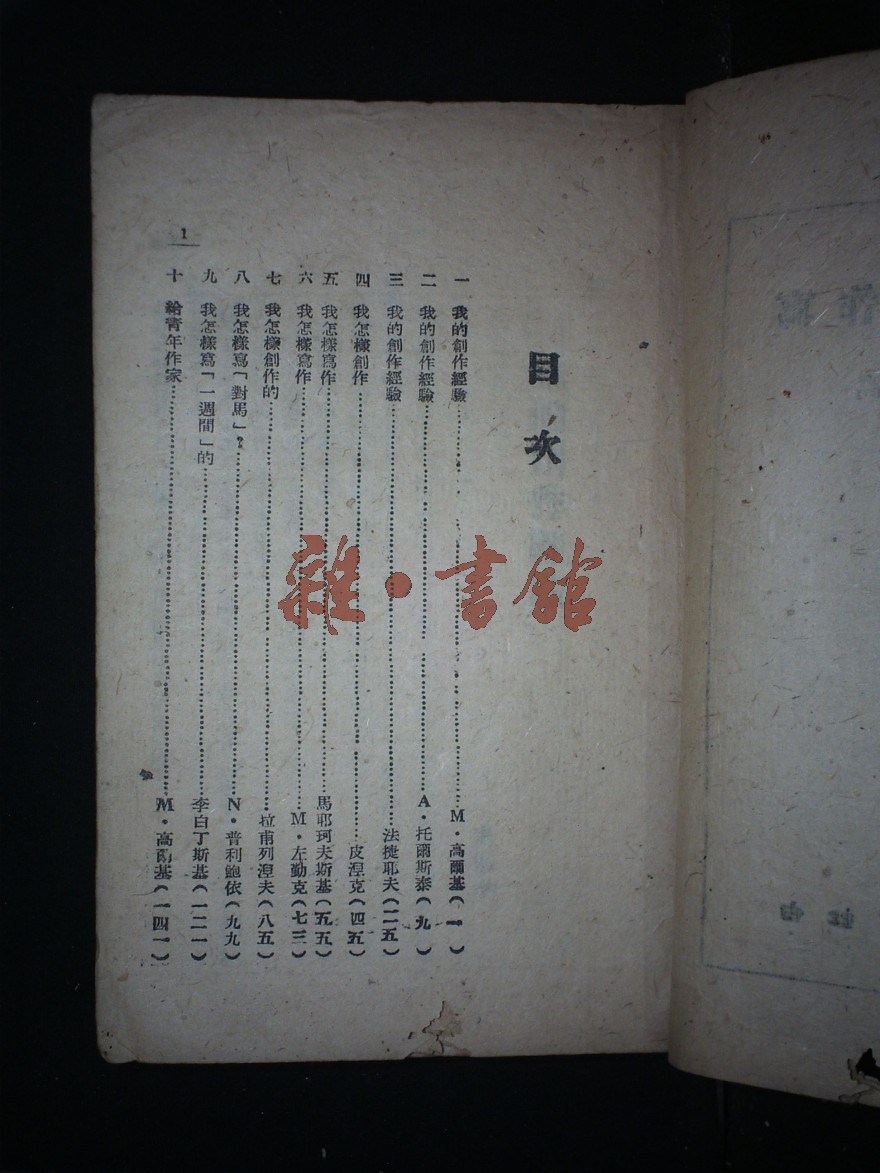 目次
一 我的創作經驗……M·高爾基(一)
二 我的創作經驗……A·托爾斯泰(九)
三 我的創作經驗……法捷耶夫(二五)
四 我怎樣創作……皮湼克(四五)
五 我怎樣寫作……馬耶珂夫斯基(五五)
六 我怎樣寫作……M·左勤克(七三)
七 我怎樣創作的……拉甫列湼夫(八五)
八 我怎樣寫「對馬」……N·普利鮑依(九九)
九 我怎樣寫「一週間」的……李白丁斯基(一二一)
十 給青年作家……M·高爾基(一四一)
1
雜·書館